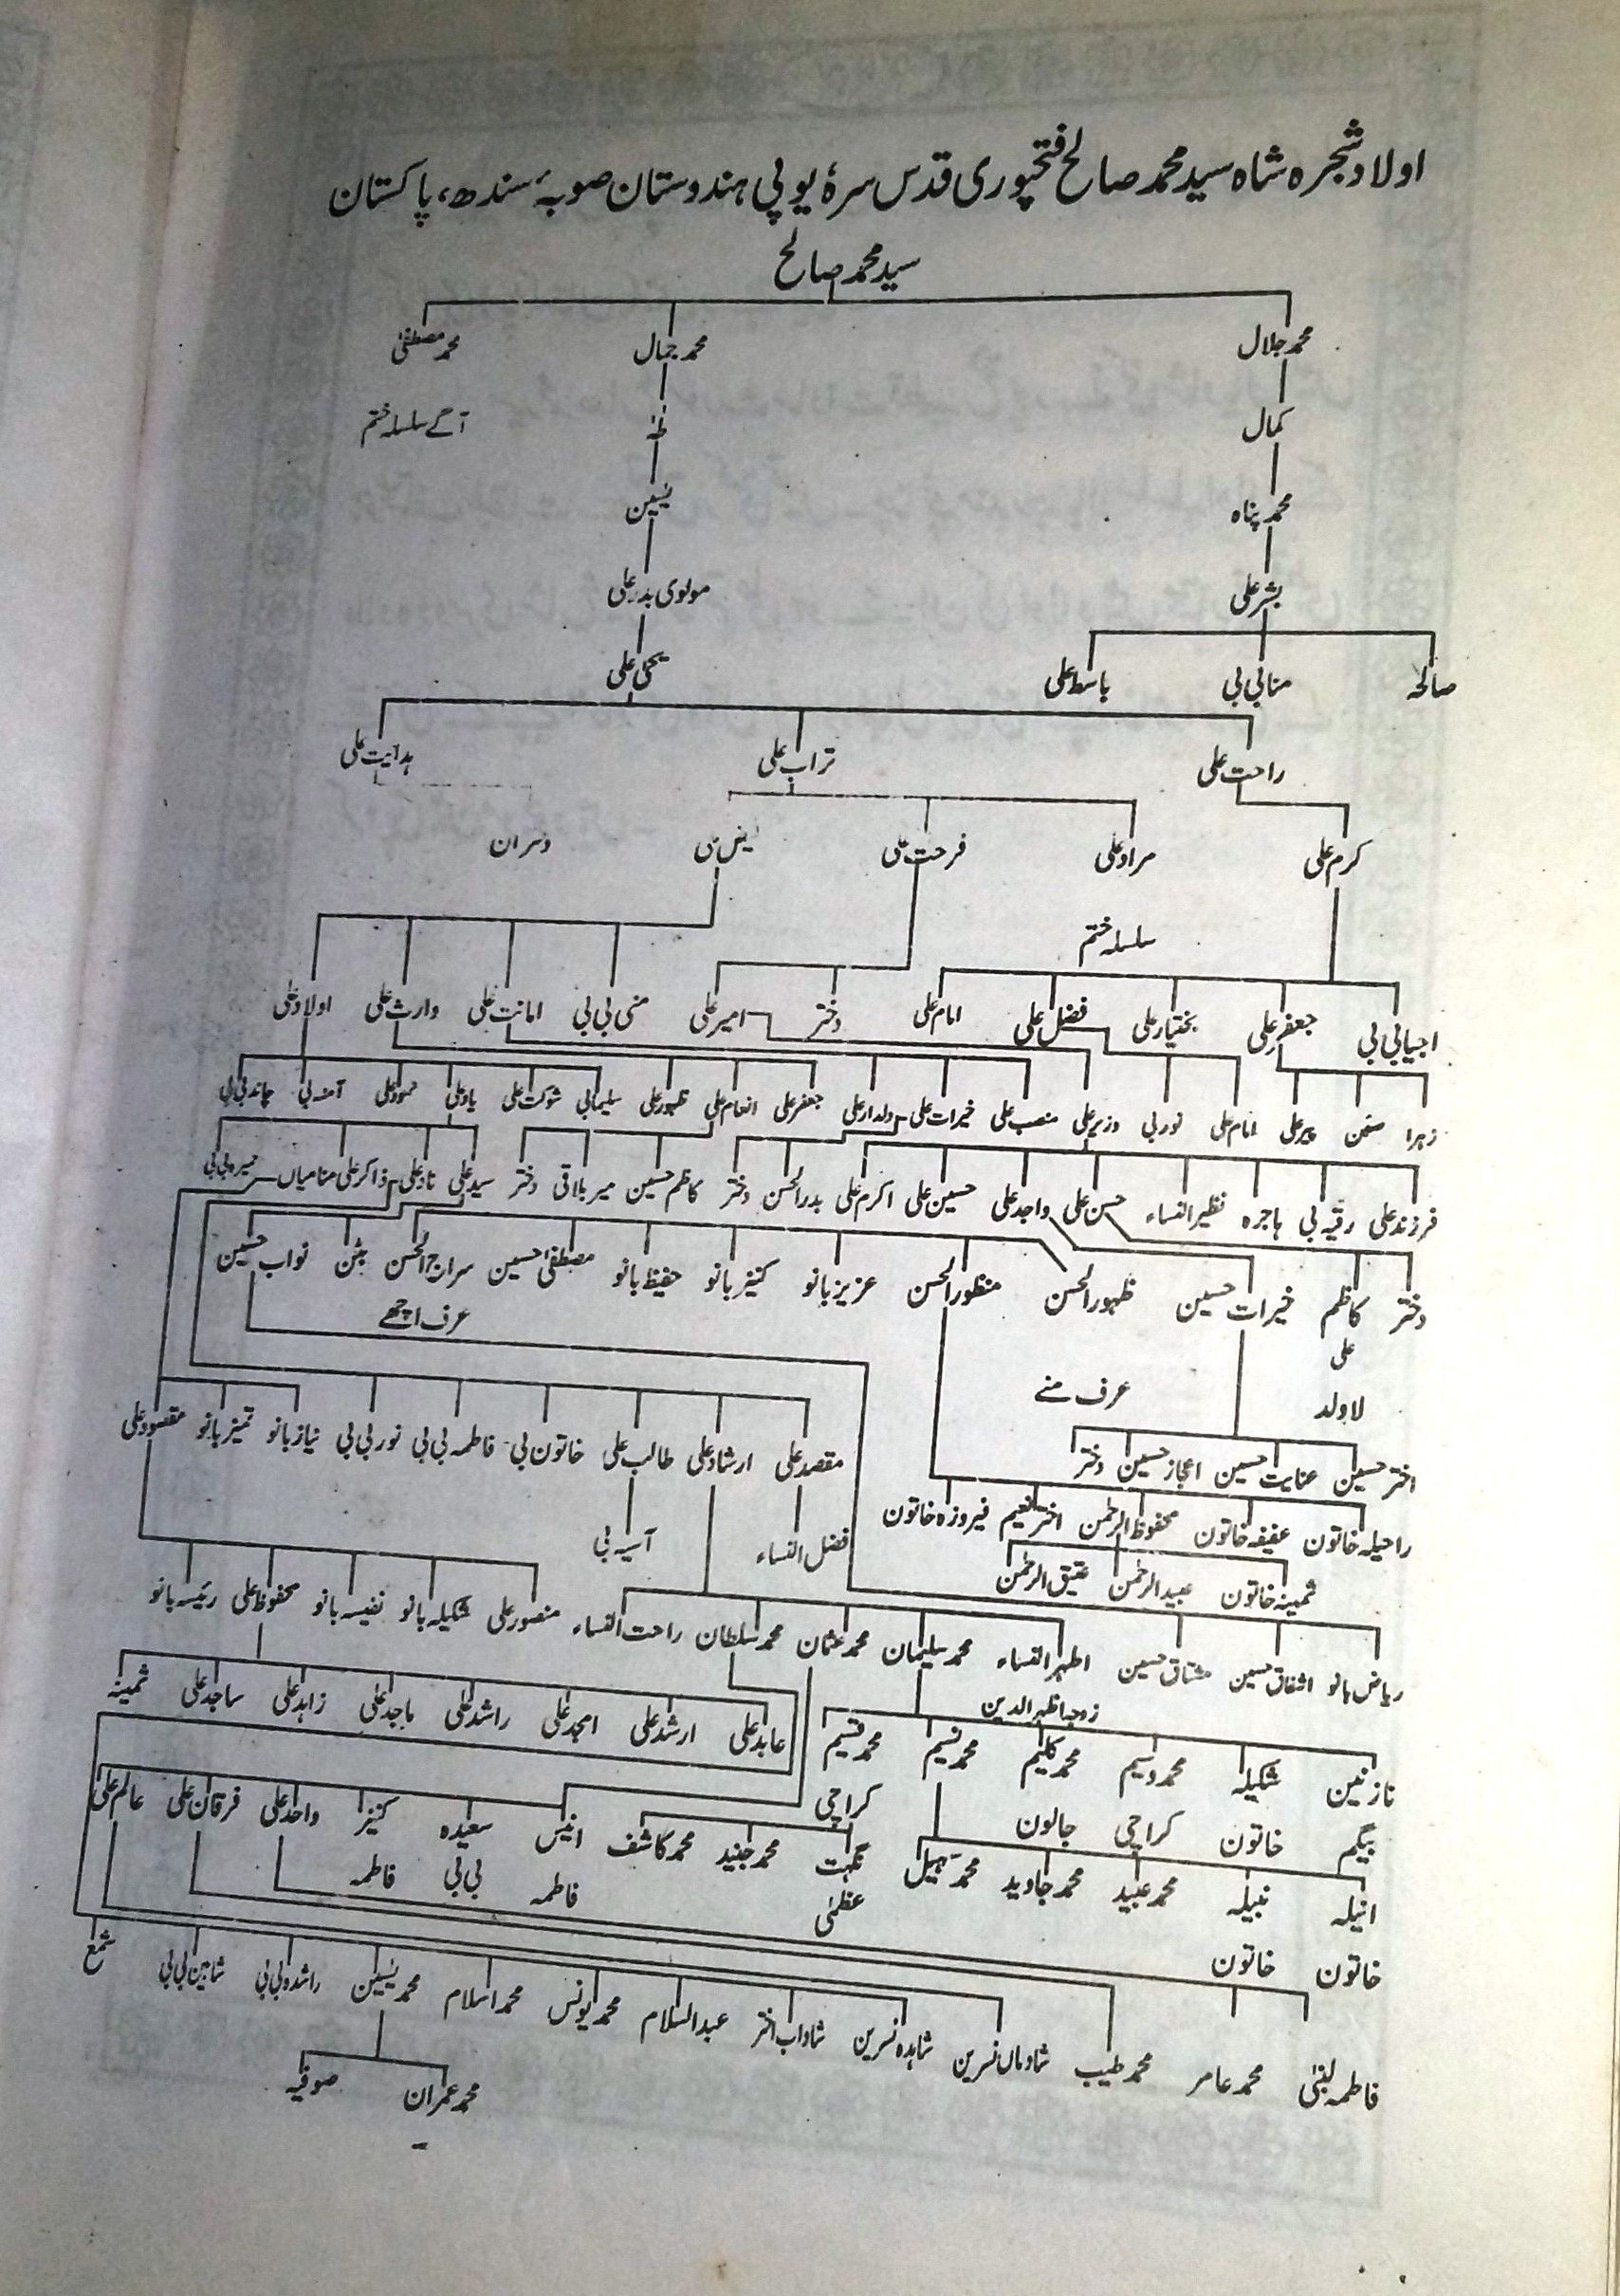 اولاد شجرہ شاہ سید محمد صالح فتحپوری قدس سرہٗ یو پی ہندوستان صوبۂ سندھ، پاکستان
سید محمد صالح
محمد جلال محمد جمال محمد مصطفیٰ
کمال طٰہٰ آگے سلسلہ ختم
محمد پناہ یٰسین
بشر علی مولوی بدر علی
صالحہ منا بی بی باسط علی یحیٰ علی
راحت علی تراب علی ہدایت علی
کرم علی مراد علی فرحت علی
سلسلہ ختم
اجیا بی بی جعفر علی بختیار علی فضل علی امام علی دختر امیر علی منی بی بی امانت علی وارث علی اولاد علی
زہرا پیر علی امام علی نور بی وزیر علی منصب علی خیرات علی دلدار علی جعفر علی انعام علی ظہور علی سلیما بی شوکت علی یاد علی آمنہ بی چاند بی بی
فرزند علی رقیہ بی ہاجرہ نظیر النساء حسن علی واجد علی حسین علی اکرم علی بدر الحسن دختر کاظم حسین میر بلاقی دختر سید علی ناد علی ذاکر علی منا میاں
دختر کاظم خیرات حسین ظہور الحسن منظور الحسن عزیز بانو کنیز بانو حفیظ بانو مصطفیٰ حسین سراج الحسن بنن نواب حسین
علی عرف اچھے
لاولد عرف منے
مقصد علی ارشاد علی طالب علی خاتون بی فاطمہ بی بی نور بی بی نیاز بانو تمیز بانو مقصود علی
اختر حسین عنایت حسین اعجاز حسین دختر
راحیلہ خاتون عفیفہ خاتون محفوظ الرحمٰن اختر نعیم فیروزہ خاتون
فضل النساء آسیہ بی
ثمینہ خاتون عبید الرحمٰن عتیق الرحمٰن
ریاض بانو اشفاق حسین مشتاق حسین اطہر النساء محمد سلیمان محمد عثمان محمد سلطان راحت النساء منصور علی شکیلہ بانو نفیسہ بانو محفوظ علی رئیسہ بانو
زوجہ اظہر الدین
عابد علی ارشد علی امجد علی راشد علی ماجد علی زاہد علی ساجد علی ثمینہ
نازنین شکیلہ محمد وسیم محمد کلیم محمد نسیم محمد قسیم
بیگم خاتون کراچی جالون کراچی
انیس سعیدہ کنیز واحد علی فرقان علی عالم علی
فاطمہ بی بی فاطمہ
انیلہ نبیلہ محمد عبید محمد جاوید محمد سہیل نگہت محمد جنید محمد کاشف
خاتون خاتون عظمیٰ
فاطمہ لبنیٰ محمد عامر محمد طیب شادماں نسرین شاہدہ نسرین شاداب اختر عبد السلام محمد یونس محمد اسلام محمد یٰسین راشدہ بی بی شاہین بی بی شمع
محمد عمران صوفیہ